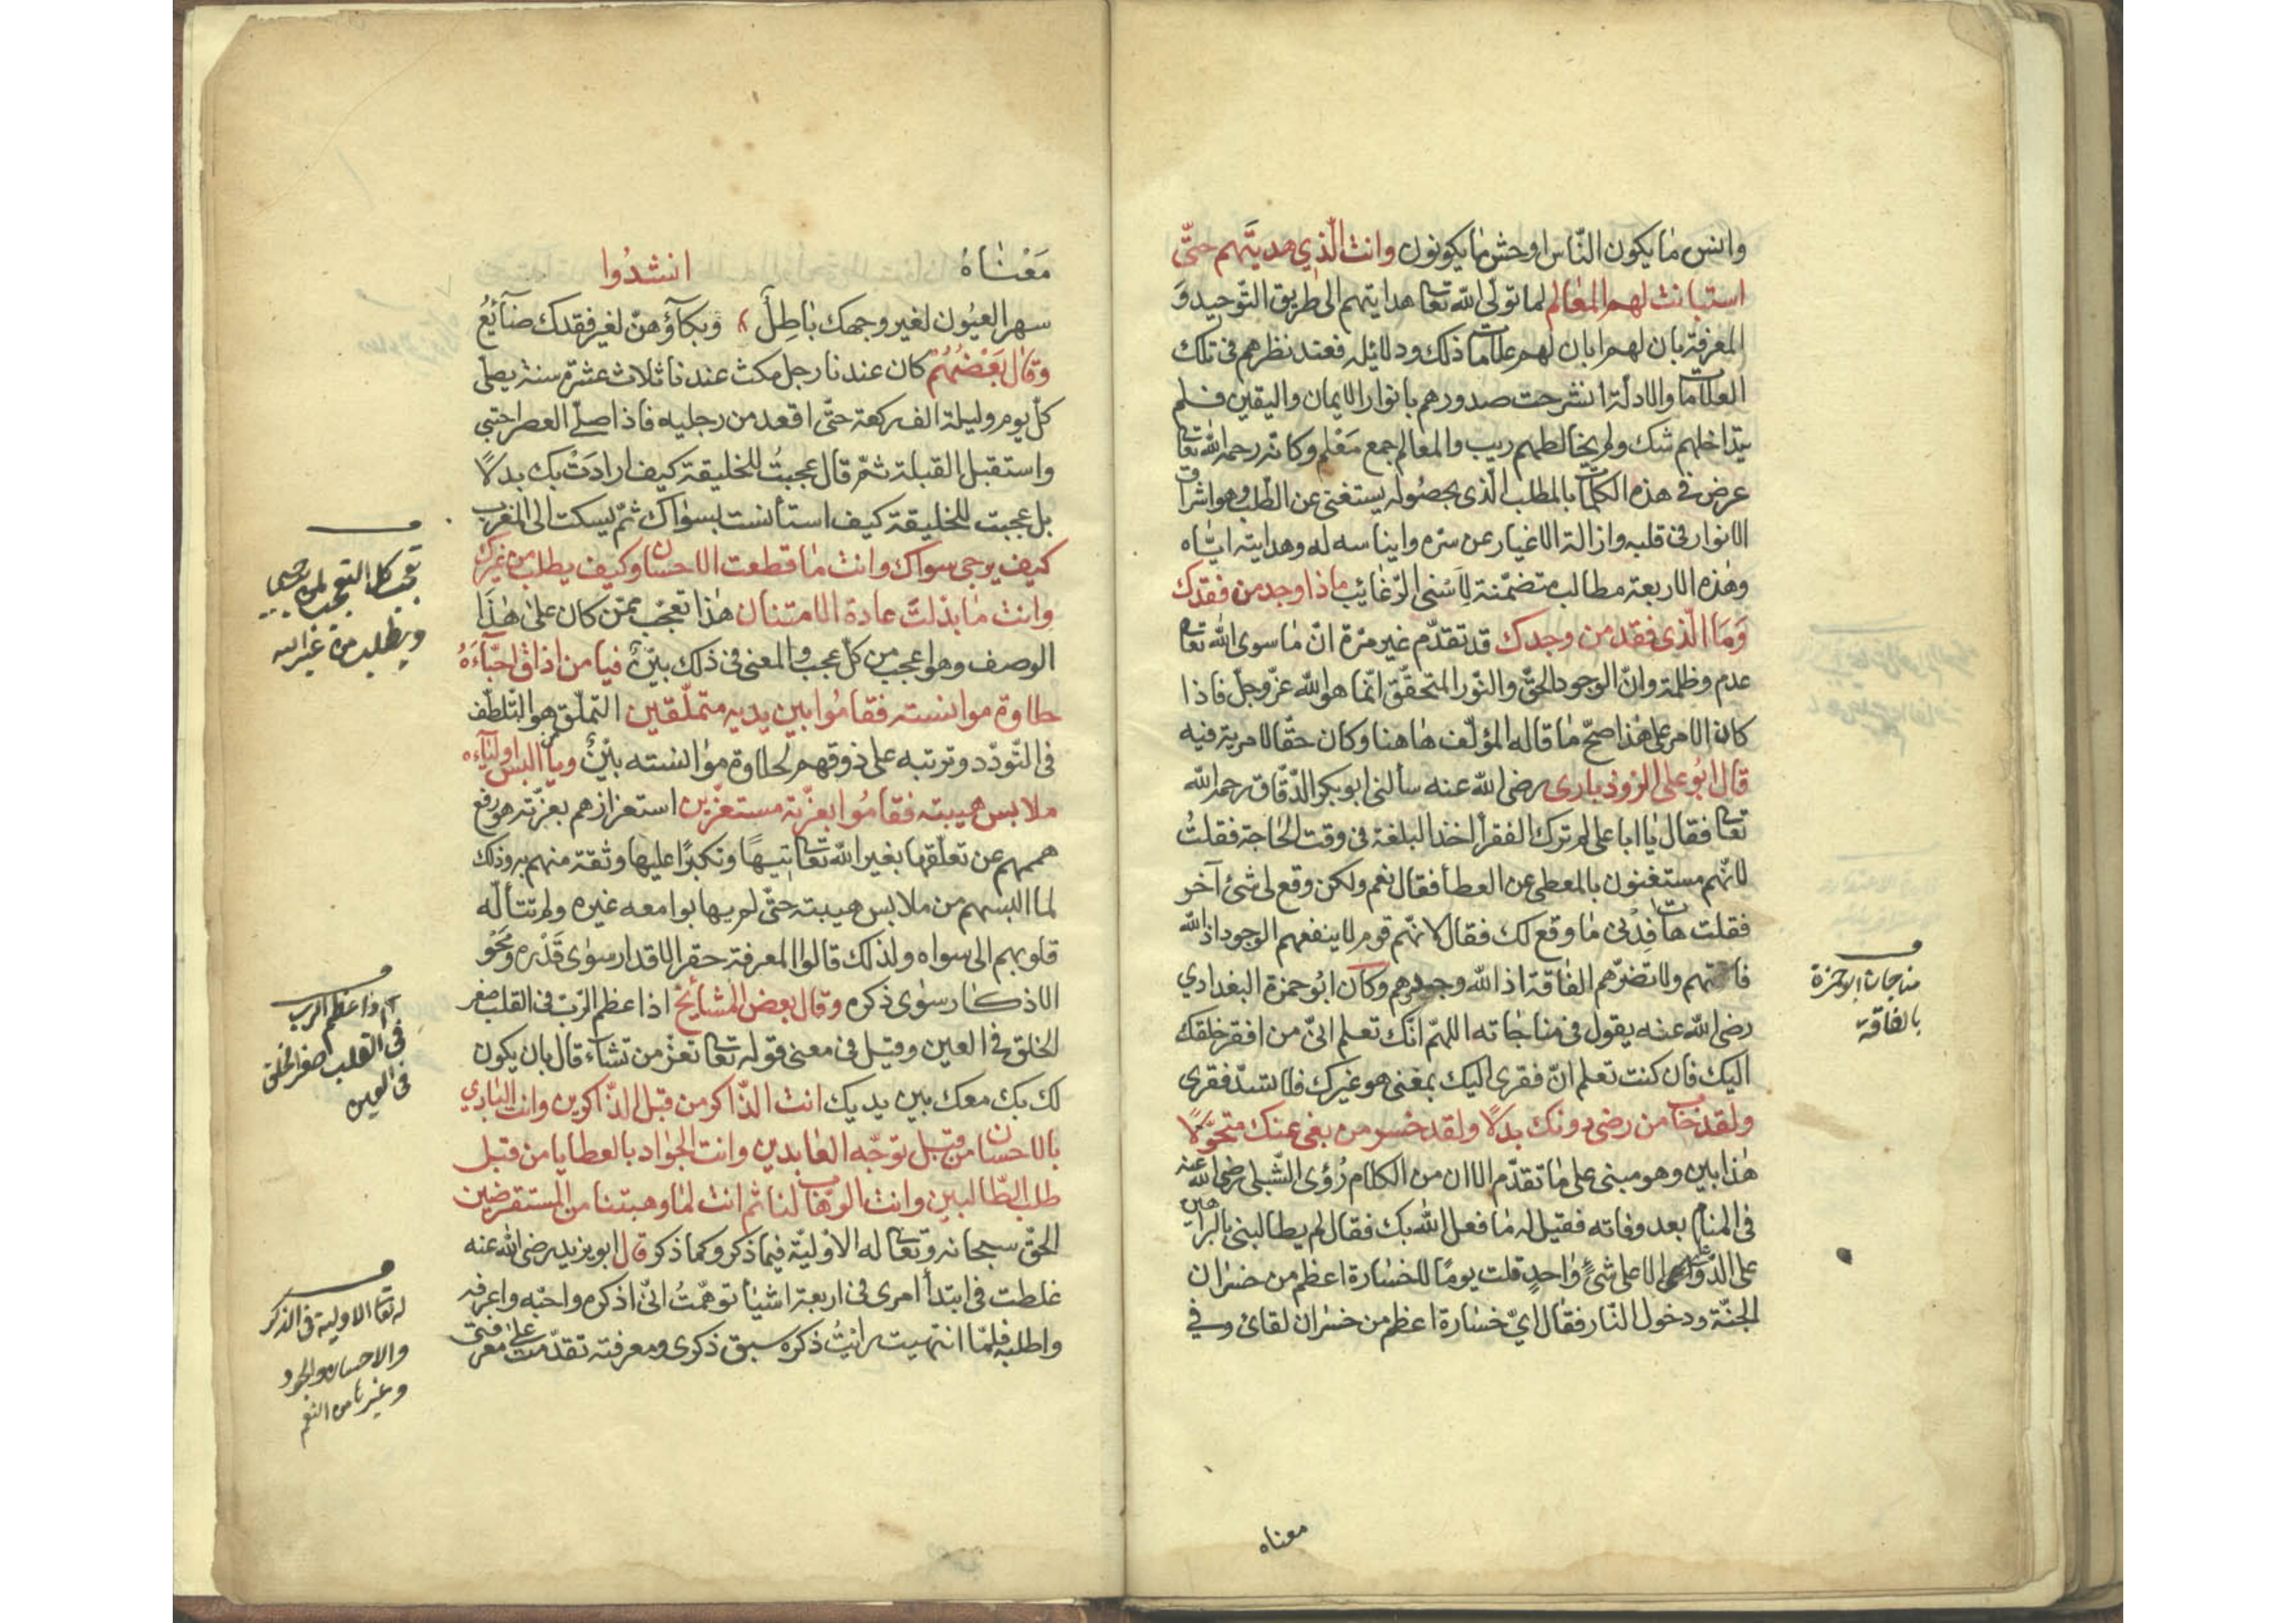 وانس مٰا يكون النّاس اوحش مٰا يكونون وانت الّذي هديتَهم حتّى
استبانت لهم المعٰالم لما تولّى الله تعالى هدايتهم الى طريق التّوحيد وَ
المعرفة بان لهم ابان لهم علامات ذلك ودلائله فعند نظرهم فى تلك
العلامات والادلّة انشرحت صدورهم بانوار الايمان واليقين فلم
يتداخلهم شك ولم يخالطهم ريب والمعالم جمع مَعْلم وكانه رحمه الله تعالى
عرض فى هذه الكلمات بالمطلب الّذى بحصُوله يستغنى عن الطّلب وهو اشراق
الانوار فى قلبه وازالة الاغيار عن سرّه وايناسه له وهدايته ايّٰاه
وهٰذه الاربعة مطالب متضمّنة لِاَسْنى الرّغٰائِب ماذا وجد من فقدك
وَمَا الّذى فقد من وجدك قد تقدّم غير مرّة انّ مٰا سوى الله تعالى
عدم وظلمة وانّ الوجود الحقّ والنّور المتحقّق انّما هو الله عزّ وجلّ فاذا
كان الامر على هٰذا صحّ مٰا قاله المؤلّف هٰاهنا وكان حقّا لا مرية فيه
قال ابُو على الروذبارى رضى الله عنه سألنى ابو بكر الدّقّاق رحمه الله
تعالى فقال يٰا ابا على لم ترك الفقرأ اخذ البلغة فى وقت الحٰاجة فقلتُ
لانّهم مستغنون بالمعطى عن العطأ فقال نعم ولكن وقع لى شئ آخر
فقلت هات افِدْنى مٰا وقع لك فقال لانّهم قوم لا ينفعهم الوجود اذ الله
فاقتهم ولا تضرّهم الفٰاقة اذ الله وجودهم وكان ابُو حمزة البغدادي
رضى الله عنه يقول فى منٰاجٰاته اللهمّ انّك تعلم انىّ من افقر خلقك
اليك فان كنت تعلم انّ فقرى اليك بمعنى هو غيرك فلا تسدّ فقرى
ولقد خاب من رضى دونك بدلًا ولقد خسر من بغى عنك متحوّلًا
هٰذا بين وهو مبنى على مٰا تقدّم الاان من الكلام رُؤى الشّبلى رضى الله عنه
فى المنام بعد وفاته فقيل له مٰا فعل الله بك فقال لم يطالبنى بالبراهين
على الدّعاوى الا على شئٍ وٰاحدٍ قلت يومًا لا خسٰارة اعظم من خسرٰان
الجنّة ودخول النّار فقال ايّ خسٰارة اعظم من خسرٰان لقائى وفي
معناه
مناجات ابو حمزة
بالفاقة
مَعْنٰاهُ انشدُوا
سهر العيُون لغير وجهك بٰاطِلٌ وَبكآؤهنّ لغير فقدك ضآئعُ
وَقٰال بَعْضُهُمْ كان عندنا رجل مكث عندنا ثلاث عشرة سنة يصلّى
كلّ يوم وليلة الف ركعة حتّى اقعد من رجليه فاذا صلّى العصر احتبى
واستقبل القبلة ثمّ قال عجبتُ للخليقة كيف ارادَتْ بك بدلًا
بل عجبت للخليقة كيف استأنست بسوٰاك ثمّ يسكت الى المغرب
كيف يرجى سواك وانت مٰا قطعت الاحسان وكيف يطلب من غيرك
وانت مٰا بذلتَ عادة الامتنان هٰذا تعجّب ممّن كان على هٰذَا
الوصف وهو اعجب من كلّ عجب والمعنى فى ذلك بيّنٌ فيا من اذاق احبّآءَهُ
حلاوة موانسته فقامُوا بين يديه متملّقين التملّق هو التّلطّف
فى التّودّد وترتبه على ذوقهم لحلاوة موٰانسته بيّنٌ ويا من البس اوليآءه
ملابس هيبته فقامُوا بعزّته مستعزّين استعزازهم بعزّته هو رفع
هممهم عن تعلّقها بغير الله تعالى تيهًا وتكبرًا عليها وثقة منهم به وذلك
لما البسهم من ملابس هيبته حتّى لم يهابوا معه غيره ولم تتألّه
قلوبهم الى سواه ولذلك قالوا المعرفة حقر الاقدار سوٰى قَدْره ومَحْو
الاذكٰار سوٰى ذكره وقال بعض المشٰايخ اذا عظم الرّبّ فى القلب صغر
الخلق فى العين وقيل فى معنى قوله تعالى تعزّ من تشآء قال بان يكون
لك بك معك بين يديك انت الذّاكر من قبل الذّاكرين وانت البٰادي
بالاحسان من قبل توجّه العٰابدين وانت الجوٰاد بالعطايا من قبل
طلب الطّالبين وانت الوهّاب لنا ثم انت لمٰا وهبتنا من المستقرضين
الحقّ سبحانه وتعالى له الاوّليّة فيما ذكر وكما ذكر قال ابو يزيد رضى الله عنه
غلطت فى ابتدأ امرى فى اربعة اشيأ توهّمتُ انّى اذكره واحبّه واعرفه
واطلبه فلمّا انتهيت رايتُ ذكره سبق ذكرى ومعرفته تقدّمت على معرفتى
ويطلب من غير الله
اذا عظم الرب
فى القلب صغر الخلق
فى العين
له تعا الاولية فى الذكر
والاحسان والجود
وغيرها من النعم